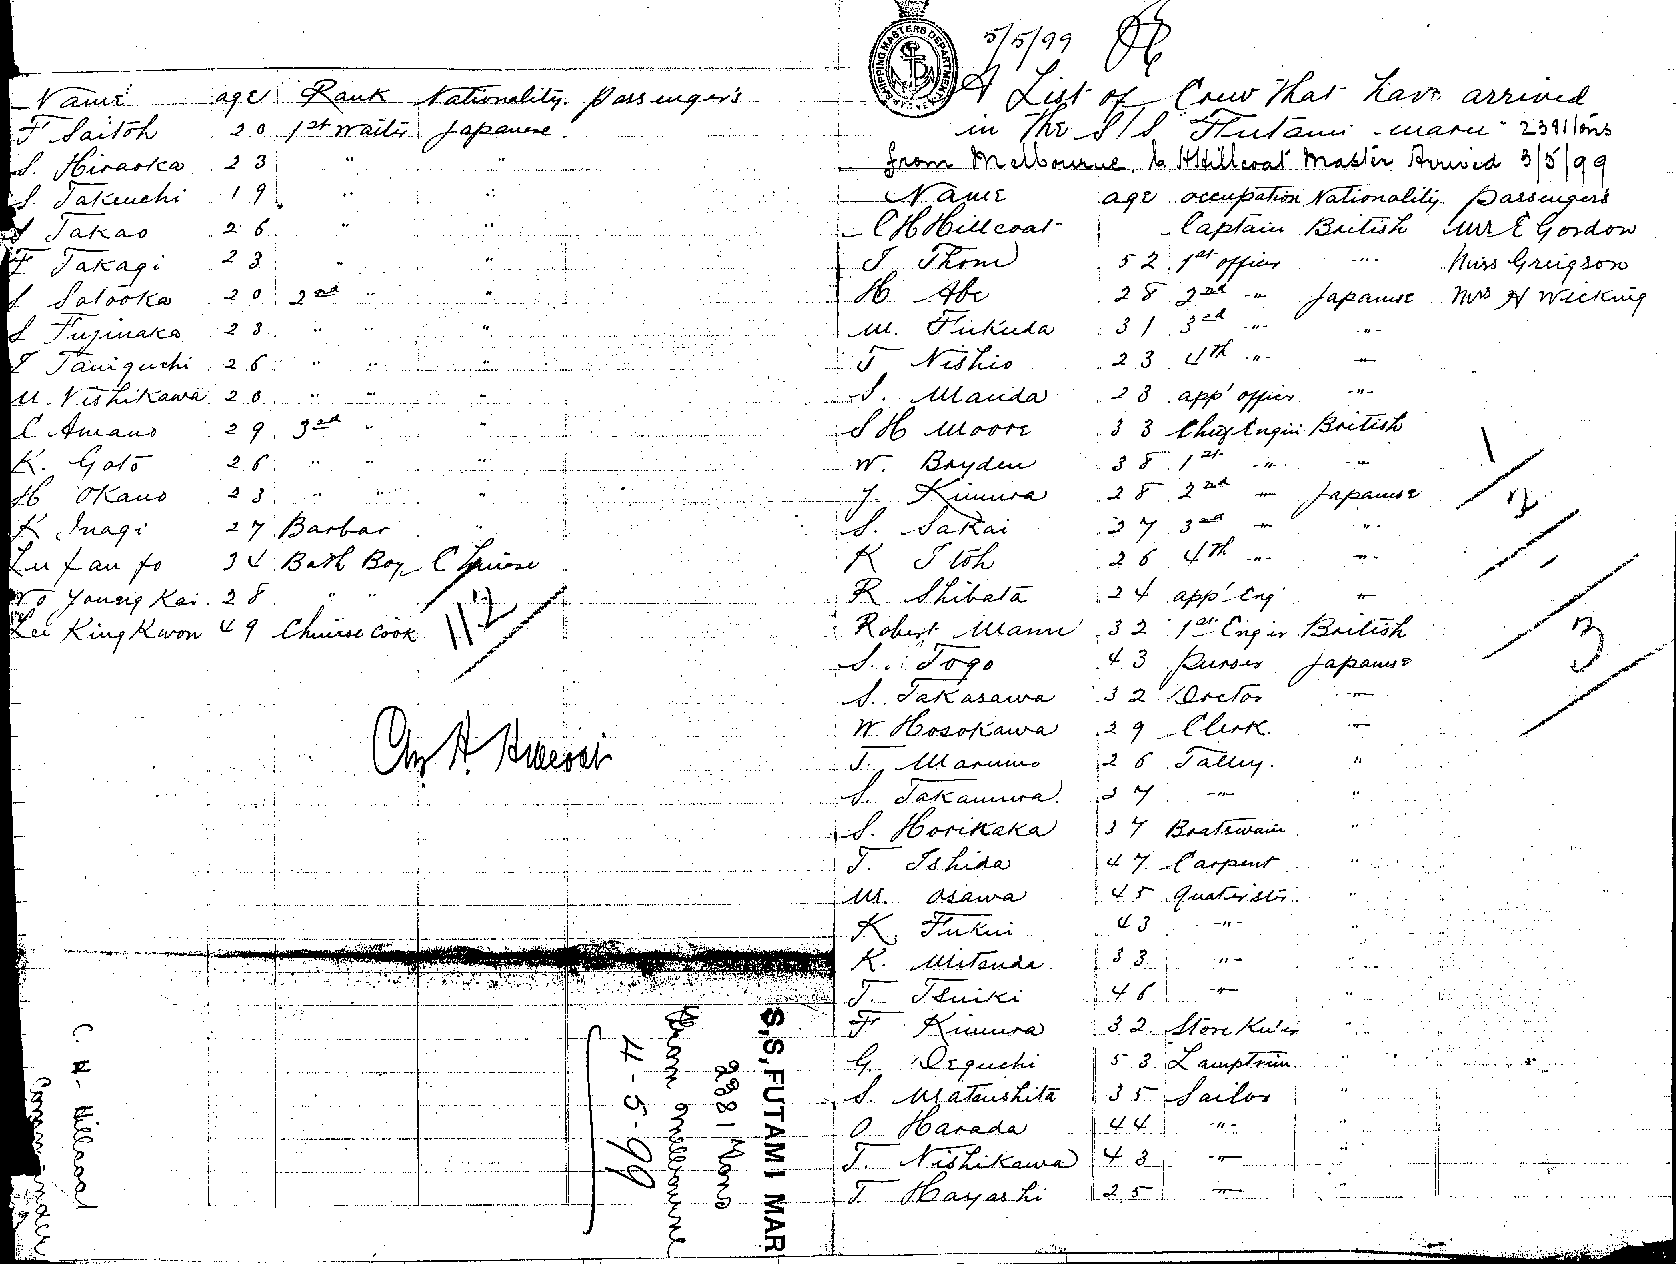 Name age Rank Nationality. Passengers
F Saitoh 20 1st waiter Japanese
S. Hiraoka 23 " "
S. Takeuchi 19 " "
S Takao 26 " "
F Takagi 23 " "
S Satooka 20 2nd " "
S Fujinaka 23 " " "
T Taniguchi 26 " " "
M. Nishikawa 20 " " "
C Amano 29 3rd " "
K. Goto 26 " " "
H Okano 23 " " "
K Inagi 27 Barbar "
34 Bath Boy Chinese
Young Kai 28 " "
Lee King Kwon 49 Chinese cook
112
Chas H. Hillcoat
C. H. Hillcoat
Commander
S,S, FUTAMI MAR
2381 Tons
From Melbourne
4-5-99
SHIPPING MASTERS DEPARTMENT
5/5/99
A List of Crew that have arrived
in the S/S Futami maru 2391 tons
from Melbourne C H Hillcoat Master Arrived 3/5/99
Name age occupation Nationality passengers
C H Hillcoat Captain British Mr E Gordon
J Thom 52 1st officer " Miss Greigson
H Abe 28 2nd " Japanese Mrs H Wicking
M. Fukuda 31 3rd " "
T Nishio 23 4th " "
S. Manda 23 app' officer "
S H Moore 33 Chief Engin British
W. Bryden 38 1st " "
J. Kimura 28 2nd " Japanese
S. Sakai 37 3rd " "
K Itoh 26 4th " "
R Shibata 24 app' Eng "
Robert Mann 32 1st Engin British
S. Togo 43 Purser Japanese
S. Takasawa 32 Doctor "
W Hosokawa 29 Clerk "
T. Marumo 26 Talley. "
S. Takamura 37 " "
S. Horikaka 37 Boatswain "
T. Ishida 47 Carpent "
M. Osawa 45 Quatirster "
K Fukui 43 "
K. Mitsuda 33 "
T. Tsuiki 46 " "
F Kimura 32 Store Ku'er "
G. Deguchi 53 Lamptrim "
S. Matsushita 35 Sailor "
O Harada 44 " "
T. Nishikawa 43 " "
T Hayashi 25 " "
3